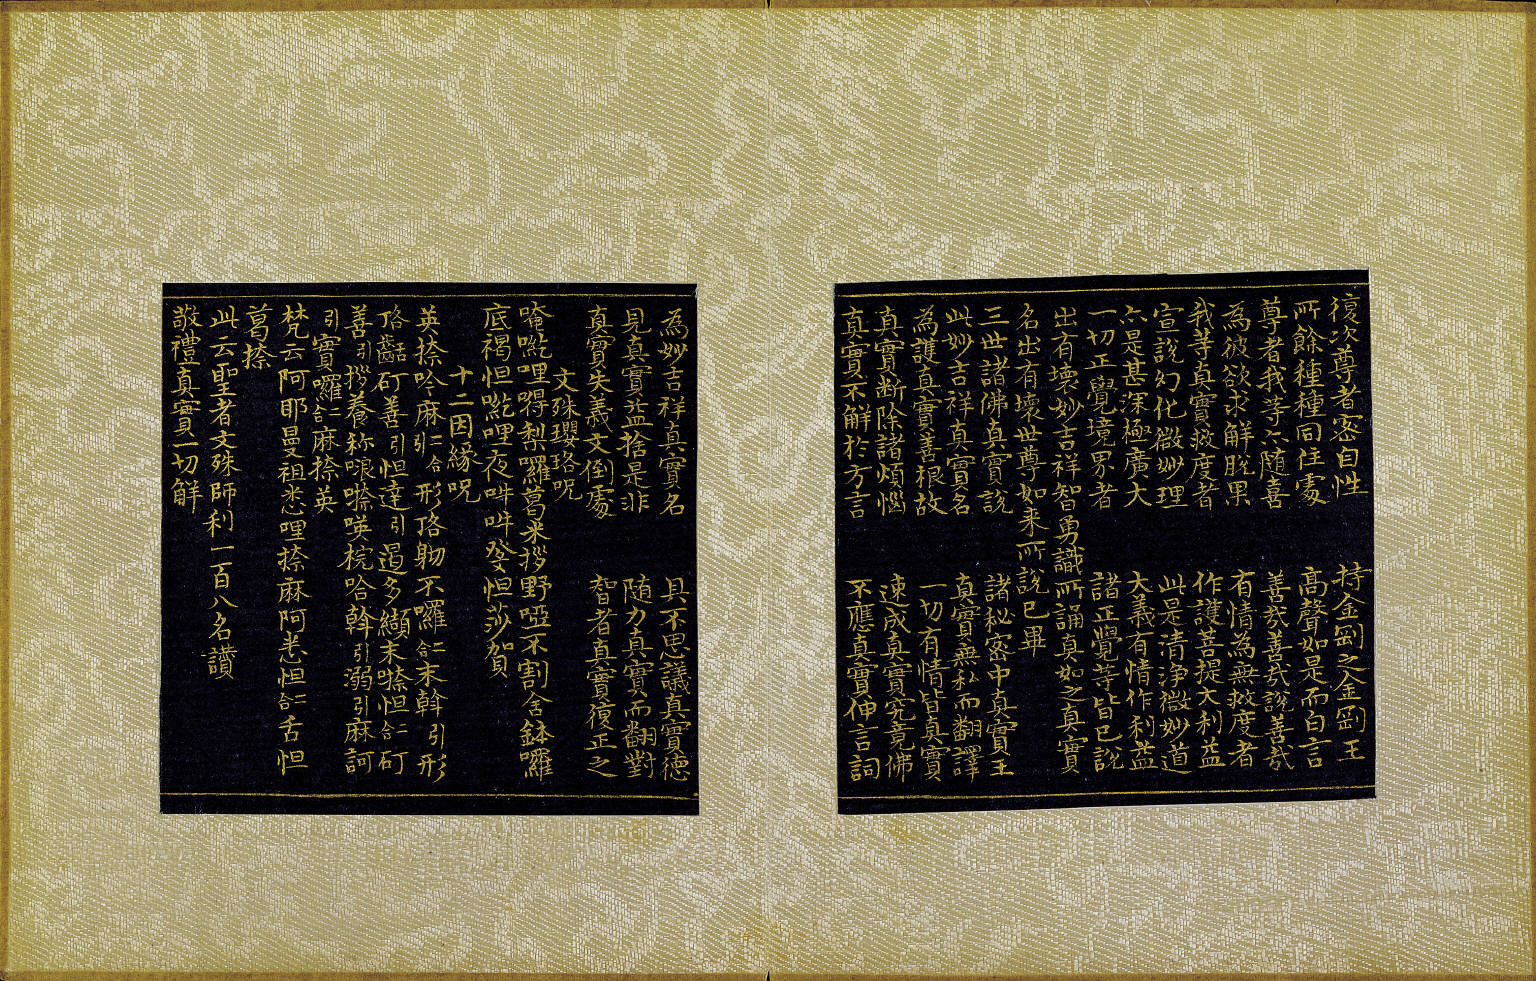 復次尊者密自性　持金剛之金剛王
所餘種種同住處　高聲如是而白言
尊者我等亦隨喜　善哉善哉說善哉
為彼欲求解脫果　有情為無救度者
我等真實救度者　作護菩提大利益
宣說幻化微妙理　此是清淨微妙道
亦是甚深極廣大　大義有情作利益
一切正覺境界者　諸正覺等皆已說
出有壞妙吉祥智勇識所誦真如之真實
名出有壞世尊如來所說已畢
三世諸佛真實說　諸秘密中真實王
此妙吉祥真實名　真實無私而翻譯
為護真實善根故　一切有情皆真實
真實斷除諸煩惱　速成真實究竟佛
真實不解於方言　不應真實伸言詞
為妙吉祥真實名　具不思議真實德
見真實益捨是非　隨力真實而翻對
真實失義文倒處　智者真實復正之
文殊瓔珞呪
唵嘚哩嘚梨囉葛米拶野啞不割舍鉢囉
底禓怛嘚哩夜吽吽癹怛莎賀
十二因緣呪
英捺吟麻二合引形珞勿不囉二合末斡引形
珞齬矴善引怛達引遏多纈末嗏怛二合矴
善引拶養称哏嗏唊梡哈斡引溺引麻訶
引實囉二合麻捺英
梵云阿耶曼祖悉哩捺麻阿恙怛二合舌怛
葛捺
此云聖者文殊師利一百八名讃
敬禮真實一切解